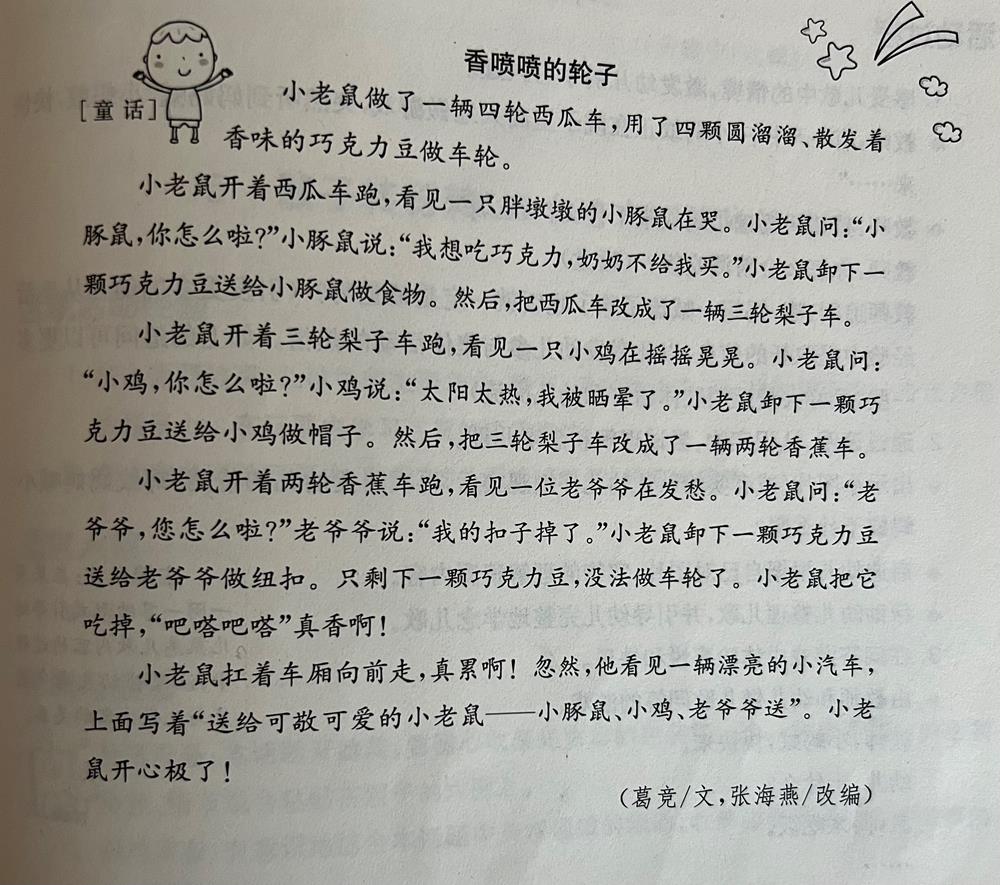 香喷喷的轮子
[童话]
小老鼠做了一辆四轮西瓜车，用了四颗圆溜溜、散发着
香味的巧克力豆做车轮。
小老鼠开着西瓜车跑，看见一只胖墩墩的小豚鼠在哭。小老鼠问：“小
豚鼠，你怎么啦？”小豚鼠说：“我想吃巧克力，奶奶不给我买。”小老鼠卸下一
颗巧克力豆送给小豚鼠做食物。然后，把西瓜车改成了一辆三轮梨子车。
小老鼠开着三轮梨子车跑，看见一只小鸡在摇摇晃晃。小老鼠问：
“小鸡，你怎么啦？”小鸡说：“太阳太热，我被晒晕了。”小老鼠卸下一颗巧
克力豆送给小鸡做帽子。然后，把三轮梨子车改成了一辆两轮香蕉车。
小老鼠开着两轮香蕉车跑，看见一位老爷爷在发愁。小老鼠问：“老
爷爷，您怎么啦？”老爷爷说：“我的扣子掉了。”小老鼠卸下一颗巧克力豆
送给老爷爷做纽扣。只剩下一颗巧克力豆，没法做车轮了。小老鼠把它
吃掉，“吧嗒吧嗒”真香啊！
小老鼠扛着车厢向前走，真累啊！忽然，他看见一辆漂亮的小汽车，
上面写着“送给可敬可爱的小老鼠——小豚鼠、小鸡、老爷爷送”。小老
鼠开心极了！
（葛竞/文，张海燕/改编）